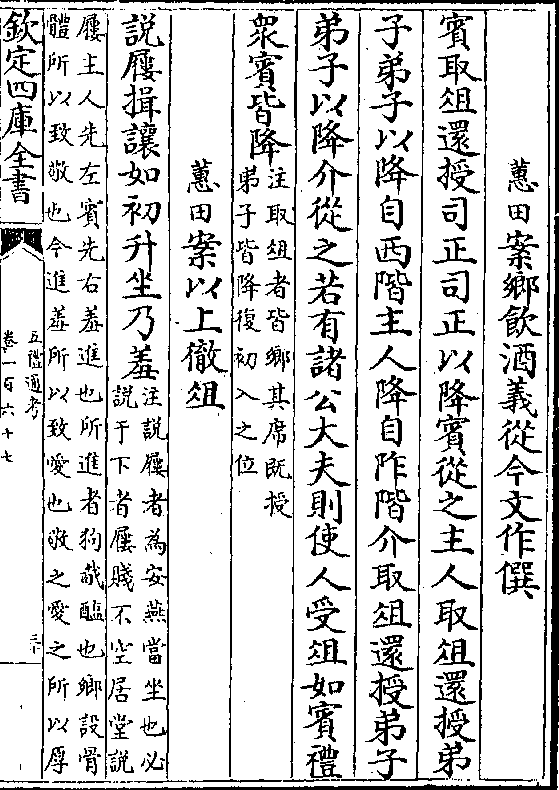 蕙田案鄉飲酒義從今文作僎
賓取俎還授司正司正以降賓從之主人取俎還授弟
子弟子以降自西階主人降自阼階介取俎還授弟子
弟子以降介從之若有諸公大夫則使人受俎如賓禮
衆賓皆降注取俎者皆鄉其席既授
弟子皆降復初入之位
蕙田案以上徹俎
說屨揖讓如初升坐乃羞注說屨者為安燕當坐也必
說于下者屨賤不空居堂說
屨主人先左賓先右羞進也所進者狗胾醢也鄉設骨
體所以致敬也今進羞所以致愛也敬之愛之所以厚
欽定四庫全書
五禮通考
卷一百六十七